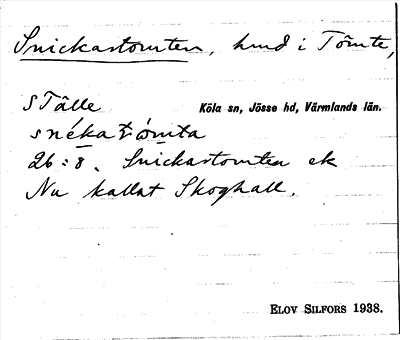 Snickartomten, hmd i Tömte,
STälle Köla sn, Jösse hd, Värmlands län.
26:8. Snickartomten ek
Nu kallat Skoghall.
ELOV SILFORS 1938.